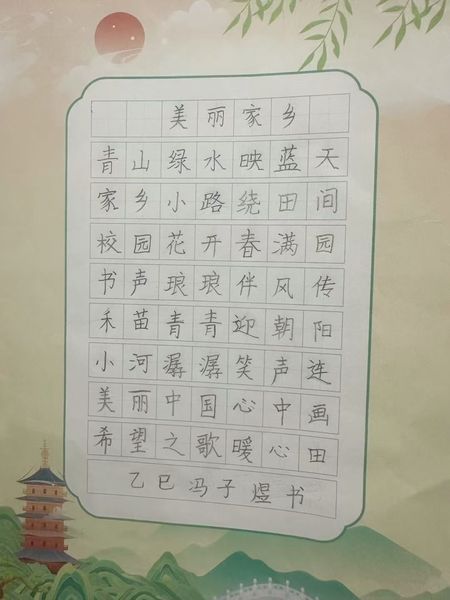 美丽家乡
青山绿水映蓝天
家乡小路绕田间
校园花开春满园
书声琅琅伴风传
禾苗青青迎朝阳
小河潺潺笑声连
美丽中国心中画
希望之歌暖心田
乙巳冯子煜书